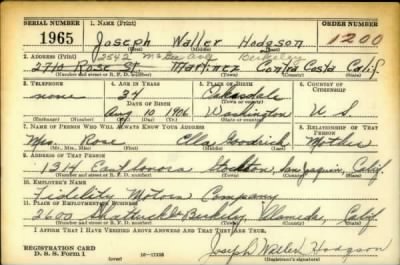 SERIAL NUMBER 1. NAME (Print) ORDER NUMBER
1965 Joseph Waller Hodgson 1200
(First) (Middle) (Last)
2542 McGee Ave Berkeley
2. ADDRESS (Print)
2710 Rose St Martinez Contra Costa Calif.
(Number and street or R. F. D. number) (Town) (County) (State)
3. TELEPHONE 4. AGE IN YEARS 5. PLACE OF BIRTH 6. COUNTRY OF CITIZENSHIP
none 34
DATE OF BIRTH (Town or county)
Aug 10 1906 Washington U. S.
(Mo.) (Day) (Yr.) (State or country)
7. NAME OF PERSON WHO WILL ALWAYS KNOW YOUR ADDRESS 8. RELATIONSHIP OF THAT PERSON
Mrs. Rose Ella Goodrich Mother
(Mr., Mrs., Miss) (First) (Middle) (Last)
9. ADDRESS OF THAT PERSON
Stockton, San Joaquin, Calif.
(Number and street or R. F. D. number) (Town) (County) (State)
10. EMPLOYER'S NAME
Fidelity Motors Company
11. PLACE OF EMPLOYMENT OR BUSINESS
2600 Shattuck Berkeley Alameda, Calif.
(Number and street or R. F. D. number) (Town) (County) (State)
I AFFIRM THAT I HAVE VERIFIED ABOVE ANSWERS AND THAT THEY ARE TRUE.
REGISTRATION CARD
D. S. S. Form 1 Joseph Waller Hodgson
(over) (Registrant's signature)